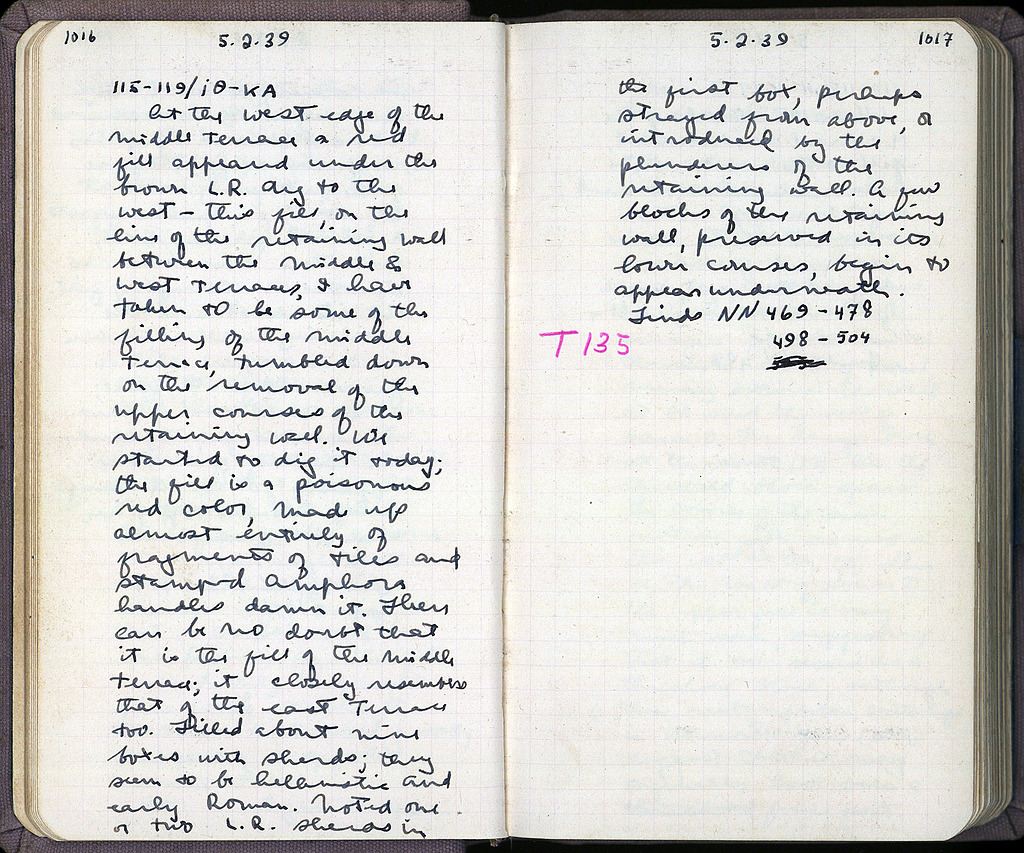 1016
5.2.39
115-119/ΙΘ-ΚΑ
At the west edge of the
middle Terrace a red
fill appeared under the
brown L.R. dig to the
west - this fill, on the
line of the retaining wall
between the middle &
west Terraces, I have
taken to be some of the
filling of the middle
Terrace, tumbled down
on the removal of the
upper courses of the
retaining wall. We
started to dig it today;
the fill is a poisonous
red color, made up
almost entirely of
fragments of tiles and
stamped amphora
handles damn it. There
can be no doubt that
it is the fill of the middle
Terrace; it closely resembles
that of the east Terrace
too. Filled about nine
boxes with sherds; they
seem to be hellenistic and
early Roman. Noted one
or two L.R. sherds in
5.2.39
1017
the first box, perhaps
strayed from above, or
introduced by the
plunderers of the
retaining wall. A few
blocks of the retaining
wall, preserved in its
lower courses, begin to
appear underneath.
Finds NN 469-478
T 135
498-504